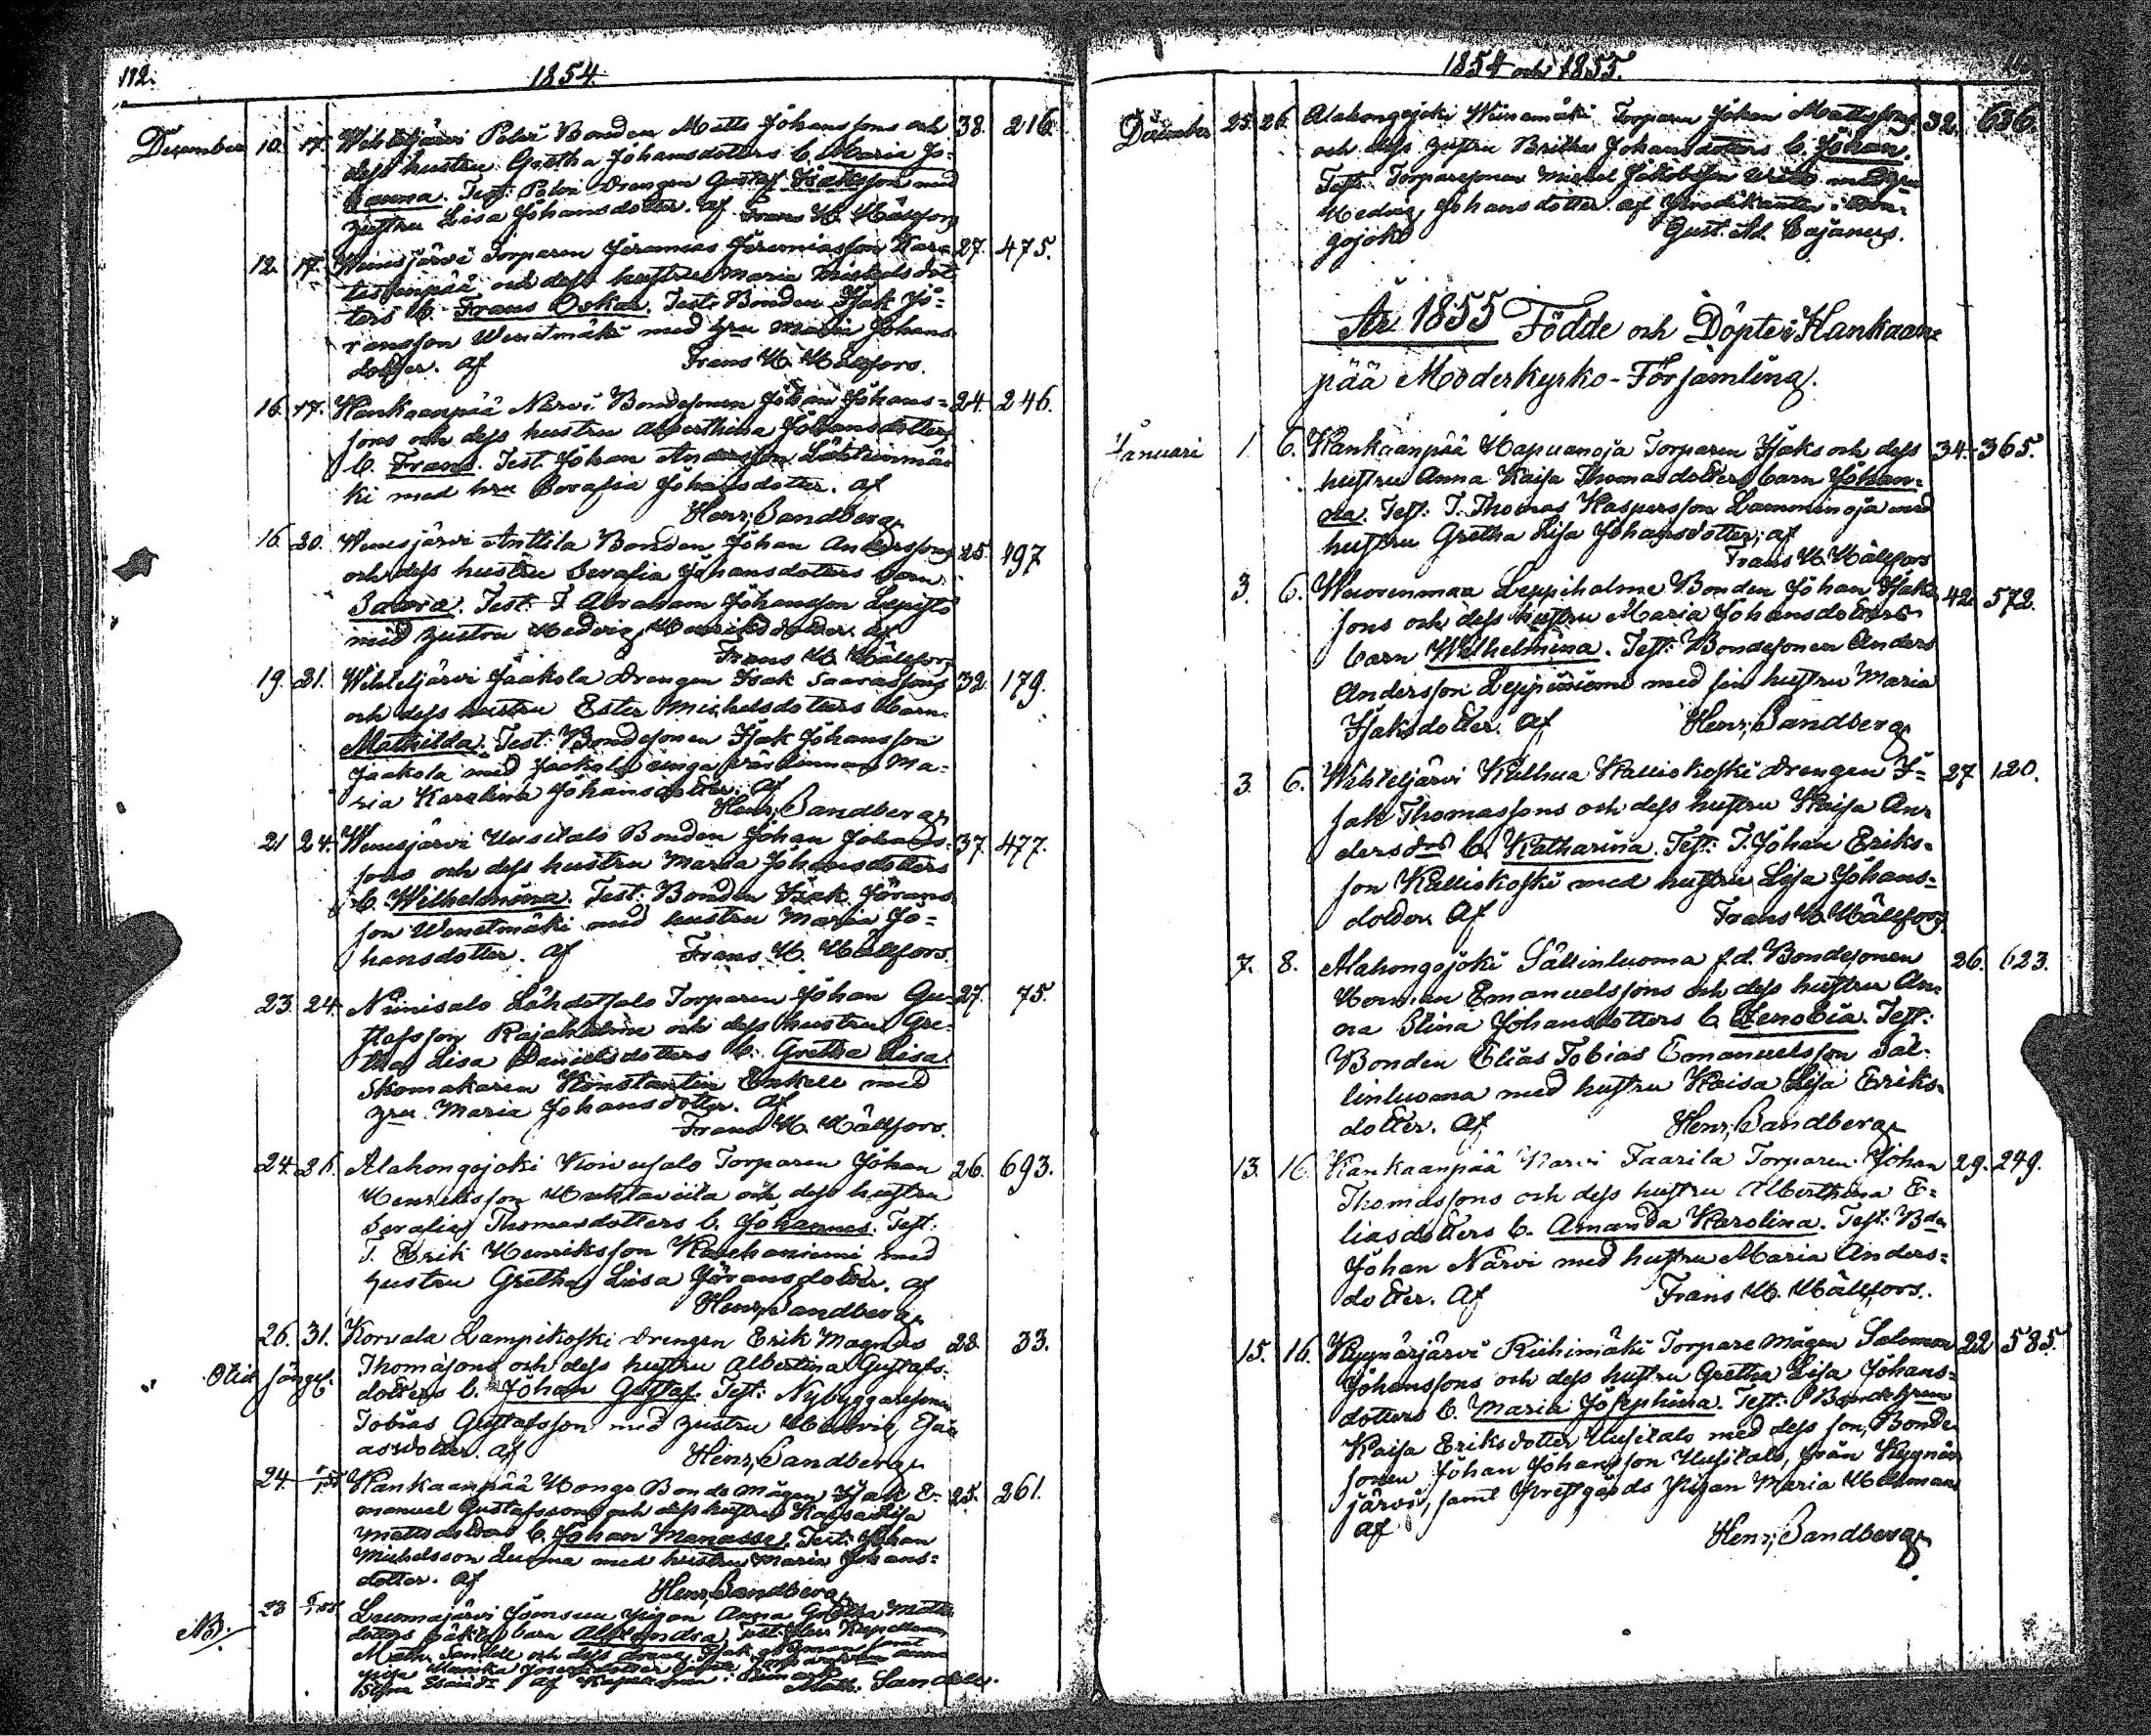 112.
1854.
December 10. 17. Wihteljärvi Bonden Matts Johanssons och 38. 216.
dess hustru Gretha Johansdotters b. Maria Jo-
hanna. Test: drengen Gustaf Isaksson med
hustru Lisa Johansdotter. af Frans H. Hällfors
12. 17. Wenesjärvi Torparen Jeremias Jeremiasson 27. 475.
och dess hustru Maria Michelsdot-
ters b. Frans Oskar. Test: Bonden Isak Jö-
ransson Wenetmäki med hru Maria Johans-
dotter. af Frans H. Hällfors.
16. 17. Kankaanpää Närvi Bondesonen Johan Johans- 24. 246.
sons och dess hustru Alberthina Johansdotters
b. Frans. Test. Johan Andersson Lähteinmä-
ki med hru Serafia Johansdotter. af
Henr. Sandberg
16. 20. Wenesjärvi Anttila Bonden Johan Anderssons 25. 497
och dess hustru Serafia Johansdotters barn
Saara. Test: T. Abraham Johansson Lepistö
med hustru Hedvig Henriksdotter. af
Frans H. Hällfors
19. 21. Wihteljärvi Jaakola drengen Isak Saarassons 32. 179.
och dess hustru Ester Michelsdotters barn
Mathilda. Test: Bondesonen Isak Johansson
Jaakola med Jaakola unga värdinnan Ma-
ria Karolina Johansdotter. af
Henr. Sandberg
21 24. Wenesjärvi Uusitalo Bonden Johan Johans- 37. 477.
sons och dess hustru Maria Johansdotters
b. Wilhelmina. Test: Bonden Isak Jörans-
son Wenetmäki med hustru Maria Jo-
hansdotter. af Frans H. Hällfors.
23. 24. Niinisalo Lähdesalo Torparen Johan Gu- 27. 75.
stafsson Rajaholme och dess hustru Gre-
tha Lisa Danielsdotters b. Gretha Lisa
Skomakaren Konstantin Enkell med
hru Maria Johansdotter. af
Frans H. Hällfors.
24. 26. Alahongojoki Koivusalo Torparen Johan 26. 693.
Henriksson och dess hustru
Serafia Thomasdotters b. Johannes. Test:
T. Erik Henriksson med
hustru Gretha Lisa Jöransdotter. af
Henr. Sandberg
26. 31. Korvala Lampikoski drengen Erik Magnus 28. 33.
Thomasons och dess hustru Albertina Gustafs-
dotters b. Johan Gustaf. Test: Nybyggaresonen
Tobias Gustafsson med hustru Hedvig Esai-
asdotter. af Henr. Sandberg
24. Kankaanpää Hongo Bonde mågen Isak E- 25. 261.
manuel Gustafssons och dess hustru Kaisa Lisa
Mattsdotters b. Johan Manasse. Test: Johan
Michelsson Luoma med hustru Maria Johans-
dotter. af Henr. Sandberg
NB. 23 Luomajärvi Joensuu pigan Anna Gretha Matts-
dotters oäkta barn Alexandra, Test: Herr Kapellanen
Math. Sandell och dess dräng Isak
af Kapellanen Math. Sandell.
1854 och 1855.
December 25. 26. Alahongojoki Niinimäki Torparen Johan Mattssons 32. 636.
och dess hustru Britha Johansdotters b. Johan.
Test: Torparesonen Michel Jakobsson med hru
Hedvig Johansdotter. af Predikanten i Hon-
gojoki Gust. Ad. Cajanus.
År 1855 Födde och Döpte i Kankaan-
pää Moderkyrko-Församling.
Januari 1. 6. Kankaanpää Hapuanoja Torparen Isaks och dess 34. 365.
hustru Anna Kaisa Thomasdotters barn Johan-
na. Test: T. Thomas Kaspersson Lamminoja med
hustru Gretha Lisa Johansdotter, af
Frans H. Hällfors
3. 6. Wuorenmaa Leppiholme Bonden Johan Isaks- 42. 572.
sons och dess hustru Maria Johansdotters
barn Wilhelmina. Test: Bondesonen Anders
Andersson Leppiniemi med sin hustru Maria
Isaksdotter. af Henr. Sandberg
3. 6. Wihteljärvi Kulhua Kalliokoski drengen I- 27 120.
sak Thomassons och dess hustru Kaisa An-
dersdrs b. Katharina. Test: T. Johan Eriks-
son Kalliokoski med hustru Lisa Johans-
dotter. af Frans H. Hällfors
7. 8. Alahongojoki Sällinluoma f.d. Bondesonen 26. 623.
Herman Emanuelssons och dess hustru An-
na Stina Johansdotters b. Zenobia. Test:
Bonden Elias Tobias Emanuelsson Säl-
linluoma med hustru Kaisa Lisa Eriks-
dotter. af Henr. Sandberg
13. 16. Kankaanpää Närvi Faarila Torparen Johan 29. 249.
Thomassons och dess hustru Alberthina E-
liasdotters b. Amanda Karolina. Test: Bden
Johan Närvi med hustru Maria Anders-
dotter. af Frans H. Hällfors.
15. 16. Kyynärjärvi Riihimäki Torpare mågen Salomon 22 585.
Johanssons och dess hustru Gretha Lisa Johans-
dotters b. Maria Josephina. Test: Bondehrun
Kaisa Eriksdotter Uusitalo med dess son, Bonde-
sonen Johan Johansson Uusitalo, från Kyynär-
järvi, samt Prestgårds Pigan Maria Hellman
af Henr. Sandberg